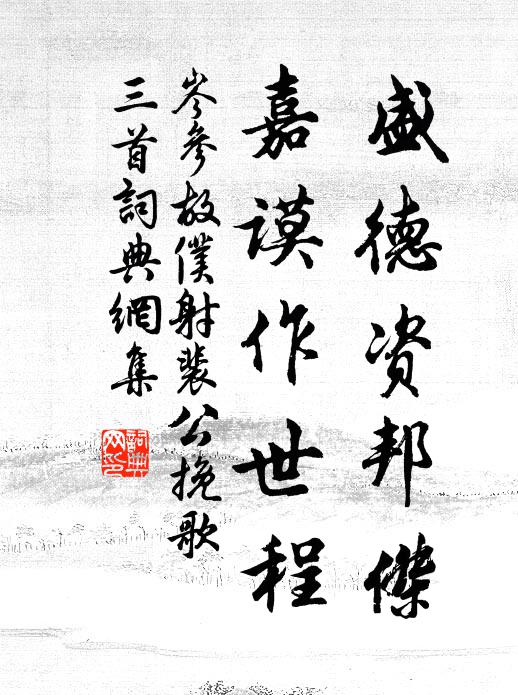 盛德资邦傑
嘉謨作世程
岑參故僕射裴公挽歌
三首詞典網集
詞典网印